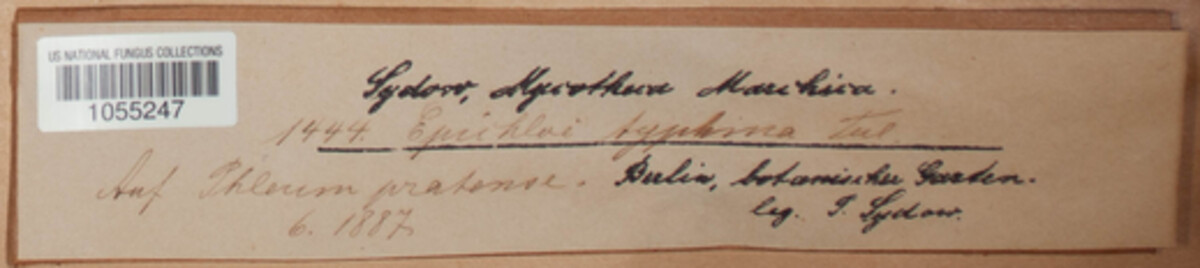 US NATIONAL FUNGUS COLLECTIONS
1055247
Sydow, Mycotheca Marchica.
1444. Epichloë typhina Tul.
Auf Phleum pratense. Berlin, botanischer Garten.
6. 1887. leg. P. Sydow.